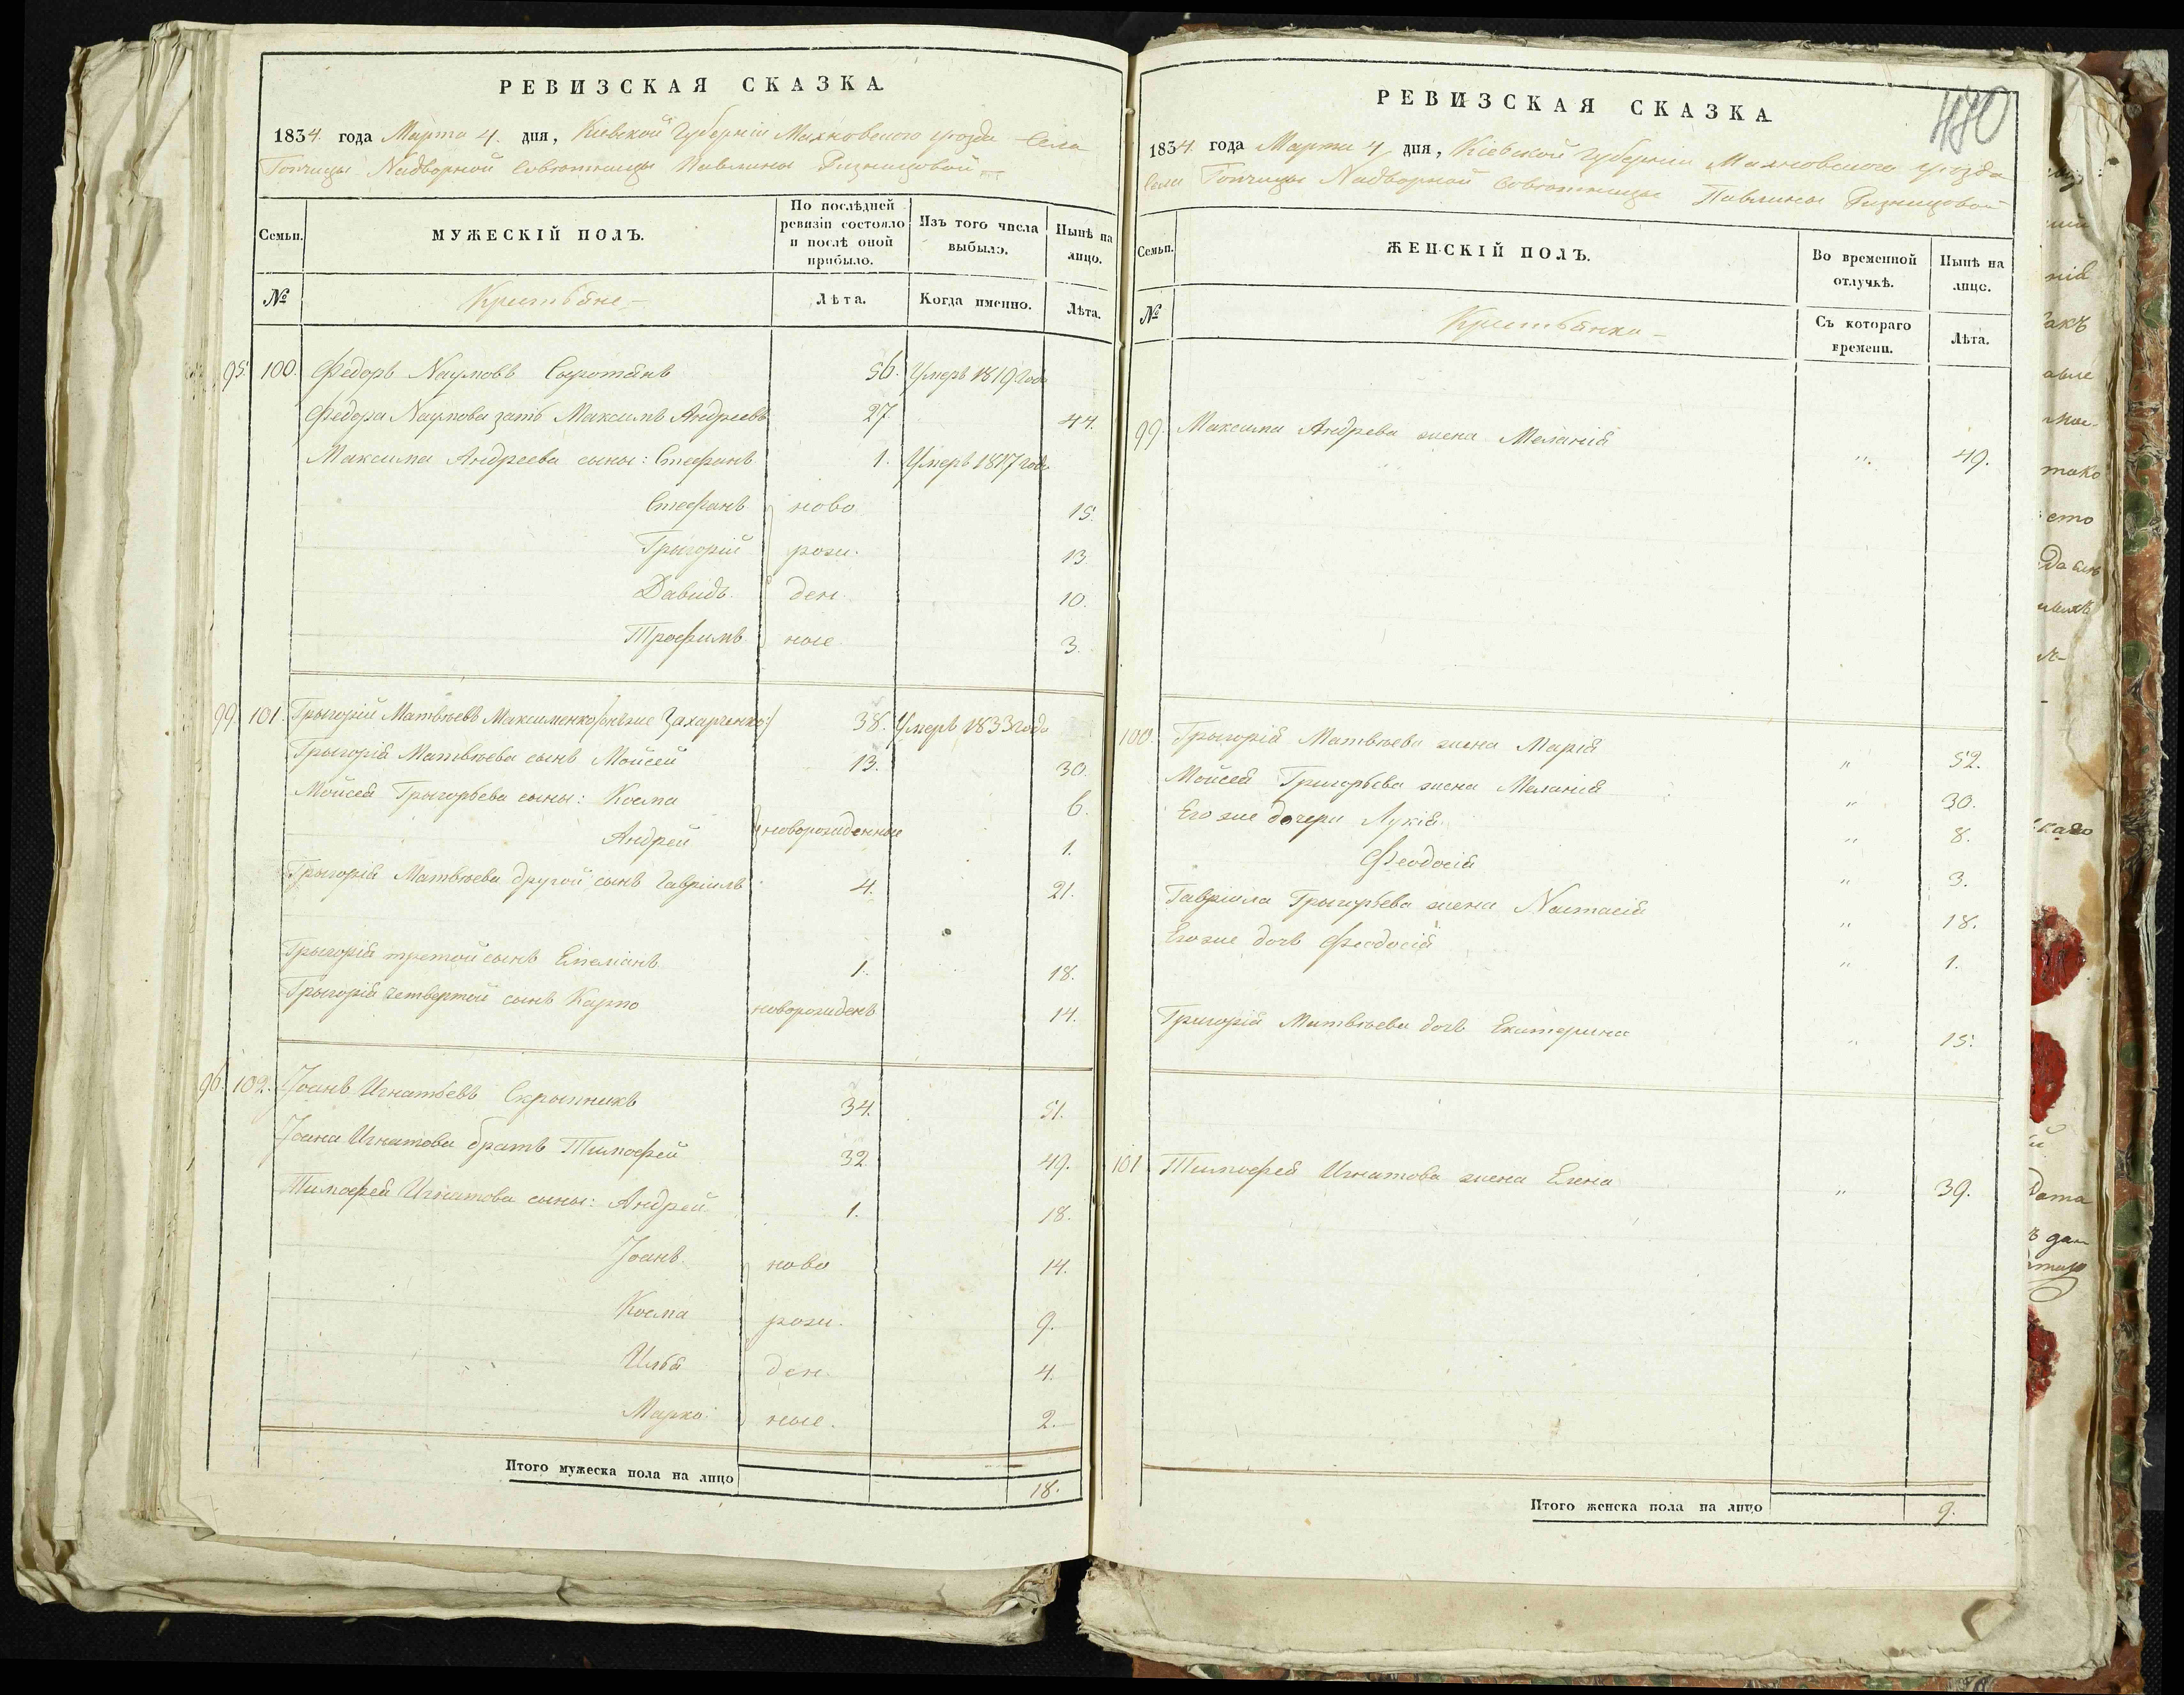 РЕВИЗСКАЯ СКАЗКА
1834. года Марта 4. дня, Киевской Губерніи Махновского уезда Села
Гопчицы Надворной Совѣтницы Павлины Ризницовой
Семьи.
МУЖЕСКІЙ ПОЛЪ.
По послѣдней ревизіи состояло и послѣ оной прибыло.
Изъ того числа выбыло.
Нынѣ на лицо.
№
Крестьяне
Лѣта.
Когда именно.
Лѣта.
95. 100. Федоръ Наумовъ 56. Умеръ 1819 года
Федора Наумова зать Максимъ Андреевъ 27 44.
Максима Андреева сыны: Стефанъ 1. Умеръ 1817 года
Стефанъ ново 15.
Григорій рож. 13
Давидъ. ден 10.
Трофимъ ные 3.
99. 101. Грыгорій Матвѣевъ Максименко /онъже Захарченко:/ 38. Умеръ 1833 года
Грыгорія Матвѣева сынъ Мойсей 13. 30.
Мойсея Грыгорьева сыны: Косма 6.
Андрей новорожденные 1.
Грыгорія Матвѣева другой сынъ Гавріилъ 4. 21.
Грыгорія третой сынъ Емеліанъ 1. 18.
Грыгорія четвертой сынъ Карпо новорожденъ 14.
96. 102. Іоанъ Игнатьевъ Скрыпникъ 34. 51.
Іоана Игнатова братъ Тимофей 32. 49.
Тимофея Игнатова сыны: Андрей 1. 18.
Іоанъ ново 14.
Косма рож. 9.
Илья ден. 4.
Марко ные. 2.
Итого мужеска пола на лицо 18.
480
РЕВИЗСКАЯ СКАЗКА
1834. года Марта 4 дня, Кіевской Губерніи Махновского уезда
Села Гопчицы Надворной Совѣтницы Павлины Ризницовой
Семьи.
ЖЕНСКІЙ ПОЛЪ.
Во временной отлучкѣ.
Нынѣ на лицо.
№
Крестьянки
Съ котораго времени.
Лѣта.
99. Максима Андрева жена Меланія " 49.
100. Грыгорія Матвѣева жена Марія " 52.
Мойсея Григорьева жена Меланія " 30.
Его же дочери Лукія " 8.
Феодосія " 3.
Гавріила Грыгорьева жена Настасія " 18.
Его же дочь Феодосія " 1.
Григорія Матвѣева дочь Екатерина " 15.
101 Тимофея Игнатова жена Елена " 39.
Итого женска пола на лицо 9.